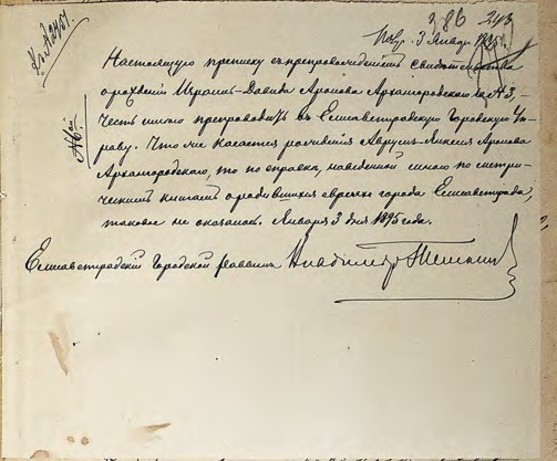 243
3 Январ. 1895 г.
№ 2451.
Настоящую переписку съ препровожденіемъ свидѣтельства
о рожденіи Израиль-Давида Аронова Архангородскаго за № 3, –
честь имѣю препроводить въ Елисаветградскую Городскую Уп-
раву. Что же касается рожденія Аврумъ-Янкеля Аронова
Архангородскаго, то по справкѣ, наведенной мною по метри-
ческимъ книгамъ о родившихся евреяхъ города Елисаветграда,
таковое не оказалось. Января 3 дня 1895 года.
Елисаветградскій Городской Раввинъ Владиміръ